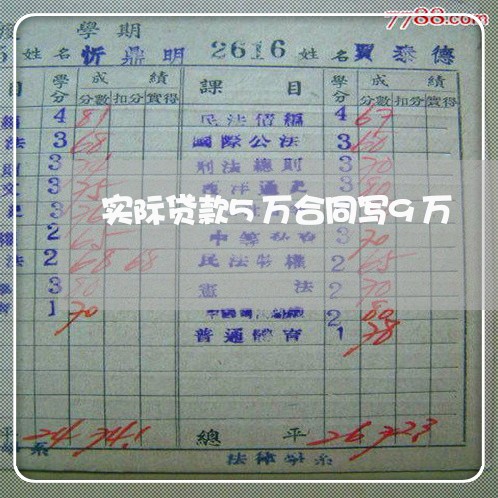 7788.com
學期
姓名 忻鼎明 2616 姓名 賈泰德
目 學分 成績 課目 學分 成績
分數 扣分 實得 分數 扣分 實得
4 81 民法債編 4 67
法 3 68 國際公法 3 60
3 刑法總則 3 70
3 75 西洋通史 3 80
实际贷款5万合同写9万
2 65 3 70
法 2 68 68 民法物權 2 65
3 80 憲法 2 70
1 70 2 80
普通體育 1 78
平 24 74.1 總平 26 72.3
系 法律學系